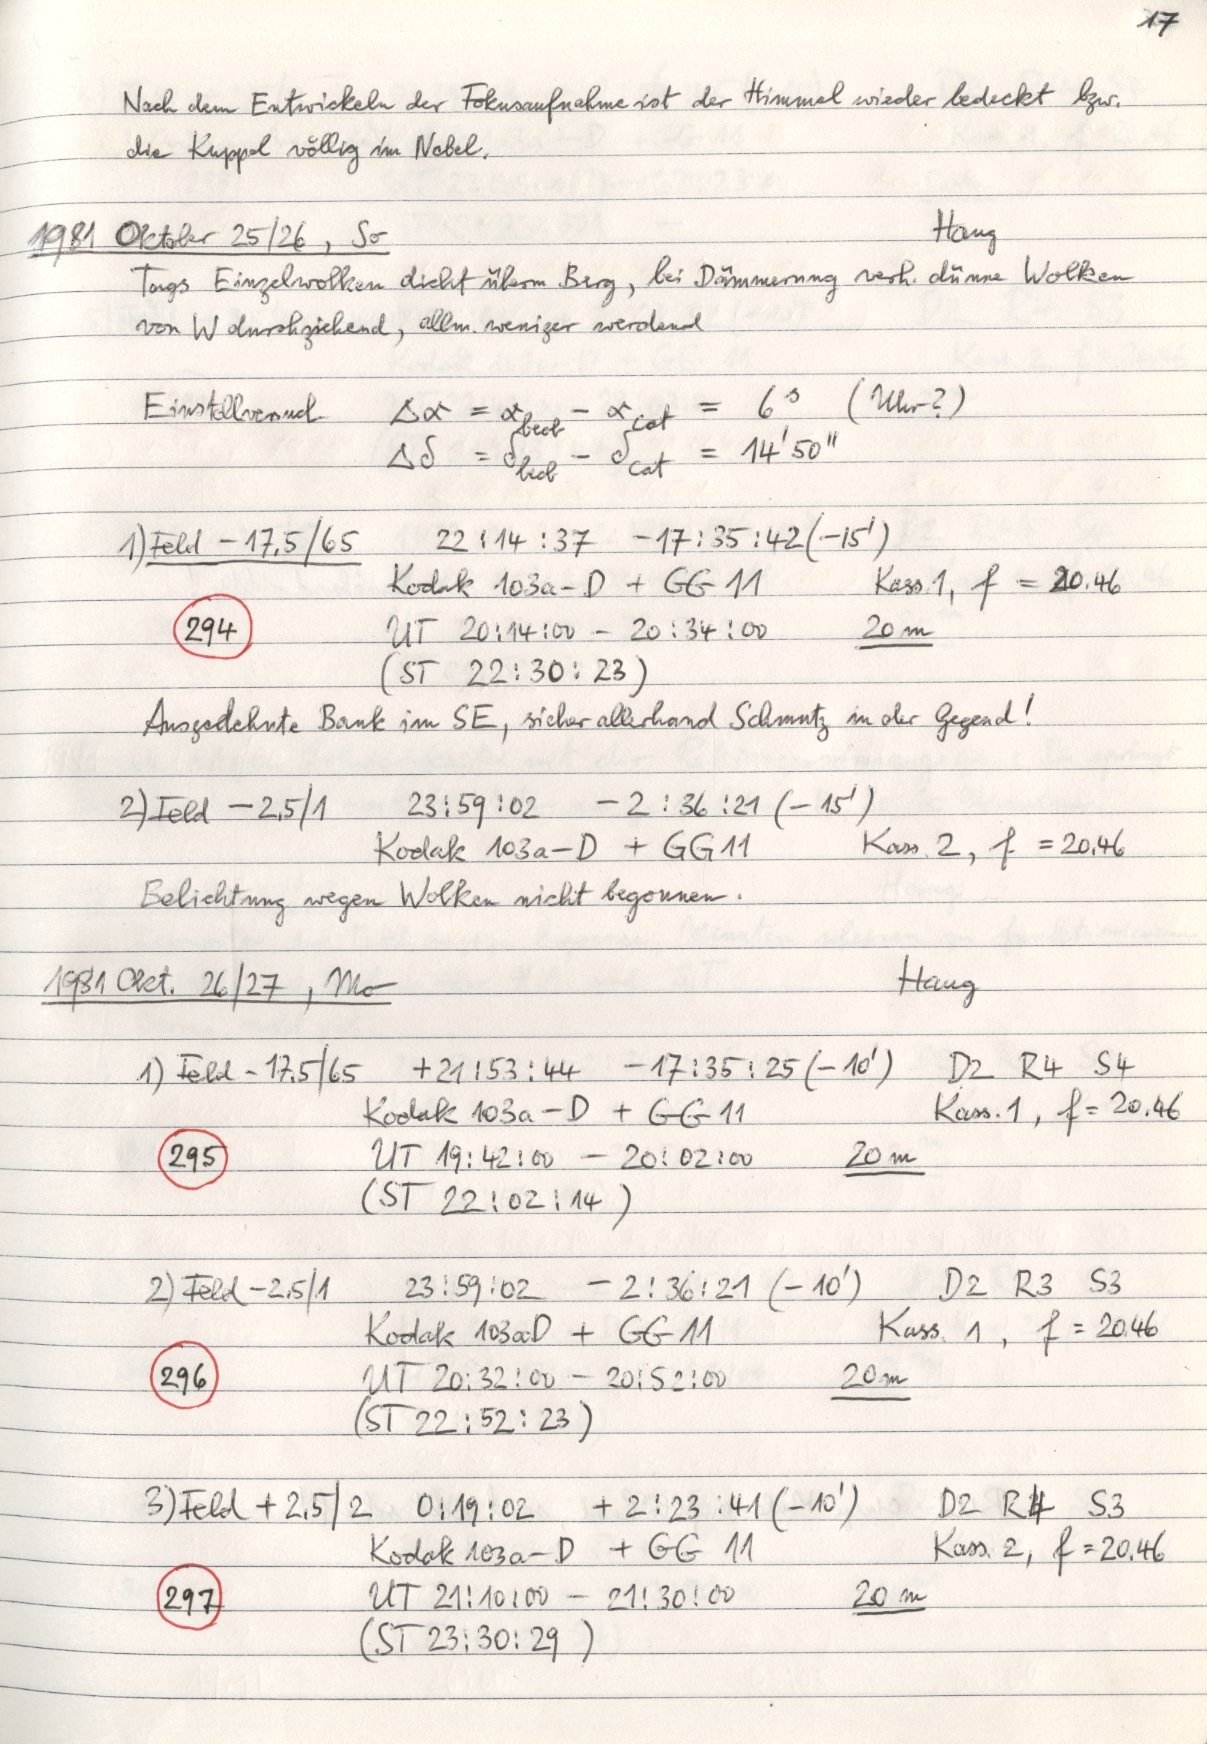 17
Nach dem Entwickeln der Fokusaufnahme ist der Himmel wieder bedeckt bzw.
die Kuppel völlig im Nebel.
1981 Oktober 25/26, So Haug
Tags Einzelwolken dicht überm Berg, bei Dämmerung verh. dünne Wolken
von W durchziehend, allm. weniger werdend
Einstellversuch Δα = α_beob − α_cat = 6ˢ (Uhr?)
Δδ = δ_beob − δ_cat = 14' 50"
1) Feld −17.5/65 22:14:37 −17:35:42 (−15')
Kodak 103a−D + GG 11 Kass. 1, f = 20.46
294 UT 20:14:00 − 20:34:00 20 m
(ST 22:30:23)
Ausgedehnte Bank im SE, sicher allerhand Schmutz in der Gegend!
2) Feld −2.5/1 23:59:02 −2:36:21 (−15')
Kodak 103a−D + GG 11 Kass. 2, f = 20.46
Belichtung wegen Wolken nicht begonnen.
1981 Okt. 26/27, Mo Haug
1) Feld −17.5/65 +21:53:44 −17:35:25 (−10') D2 R4 S4
Kodak 103a−D + GG 11 Kass. 1, f = 20.46
295 UT 19:42:00 − 20:02:00 20 m
(ST 22:02:14)
2) Feld −2.5/1 23:59:02 −2:36:21 (−10') D2 R3 S3
Kodak 103aD + GG 11 Kass. 1, f = 20.46
296 UT 20:32:00 − 20:52:00 20 m
(ST 22:52:23)
3) Feld +2.5/2 0:19:02 +2:23:41 (−10') D2 R4 S3
Kodak 103a−D + GG 11 Kass. 2, f = 20.46
297 UT 21:10:00 − 21:30:00 20 m
(ST 23:30:29)